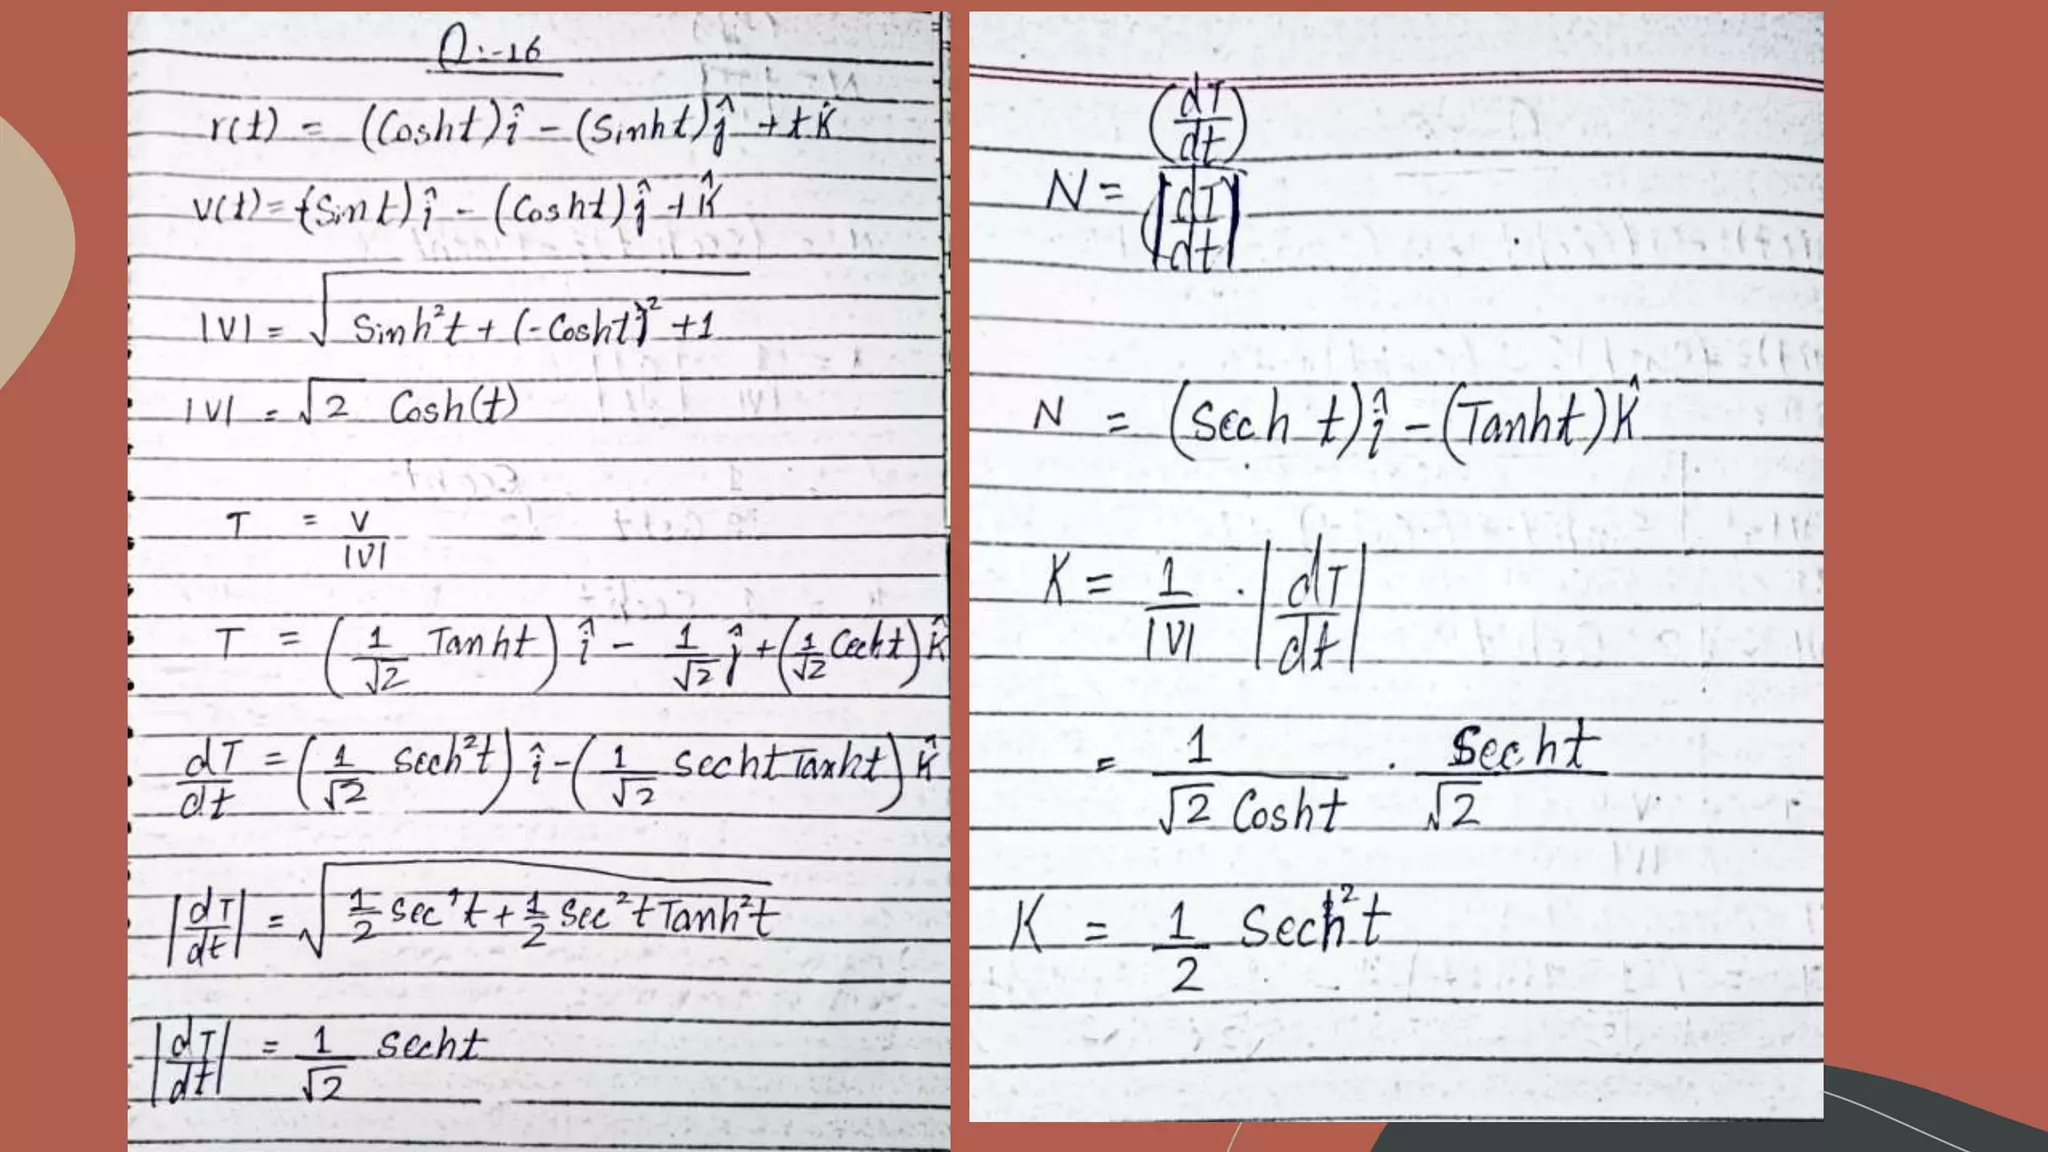 Q:-16
r(t) = (Cosht)î - (Sinht)ĵ + tK̂
v(t) = (Sint)î - (Cosht)ĵ + K̂
|V| = √(Sinh²t + (-Cosht)² + 1)
|V| = √2 Cosh(t)
T = V/|V|
T = (1/√2 Tanht)î - 1/√2 ĵ + (1/√2 Cecht)K̂
dT/dt = (1/√2 Sech²t)î - (1/√2 Secht Tanht)K̂
|dT/dt| = √(1/2 Sec⁴t + 1/2 Sec²t Tanh²t)
|dT/dt| = 1/√2 Secht
N = (dT/dt)/|dT/dt|
N = (Sech t)î - (Tanht)K̂
K = 1/|V| · |dT/dt|
= 1/√2 Cosht · Secht/√2
K = 1/2 Sech²t